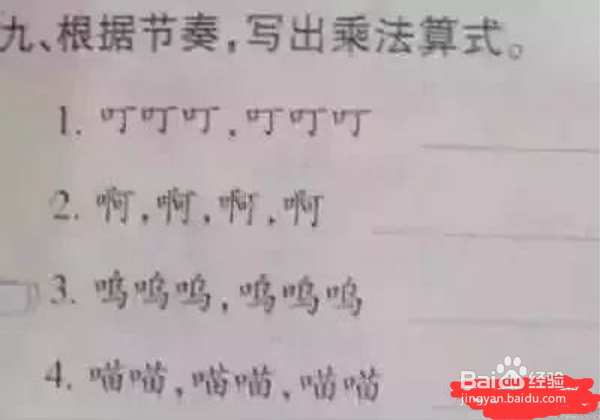 九、根据节奏，写出乘法算式。
1. 叮叮叮，叮叮叮
2. 啊，啊，啊，啊
3. 呜呜呜，呜呜呜
4. 喵喵，喵喵，喵喵
Baidu经验
jingyan.baidu.com